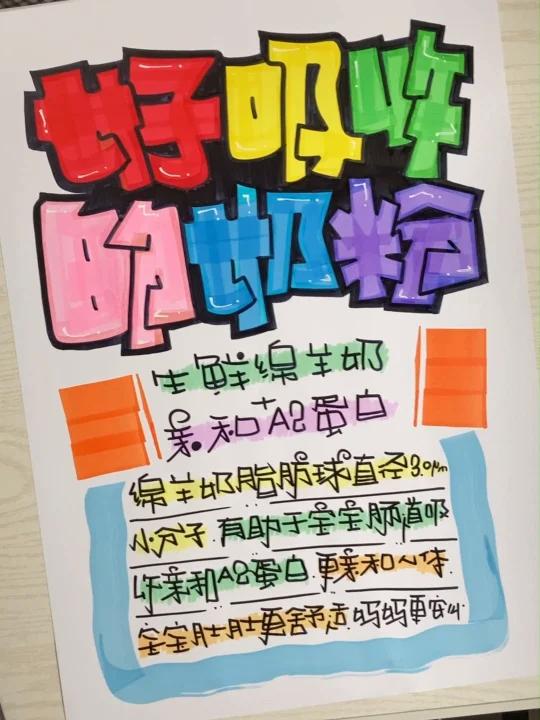 好吸收
的奶粉
生鲜绵羊奶
+
亲和A2蛋白
绵羊奶脂肪球直径3.0μm
小分子 有助于宝宝肠道吸
收亲和A2蛋白 更亲和人体
宝宝肚肚更舒适 妈妈更安心